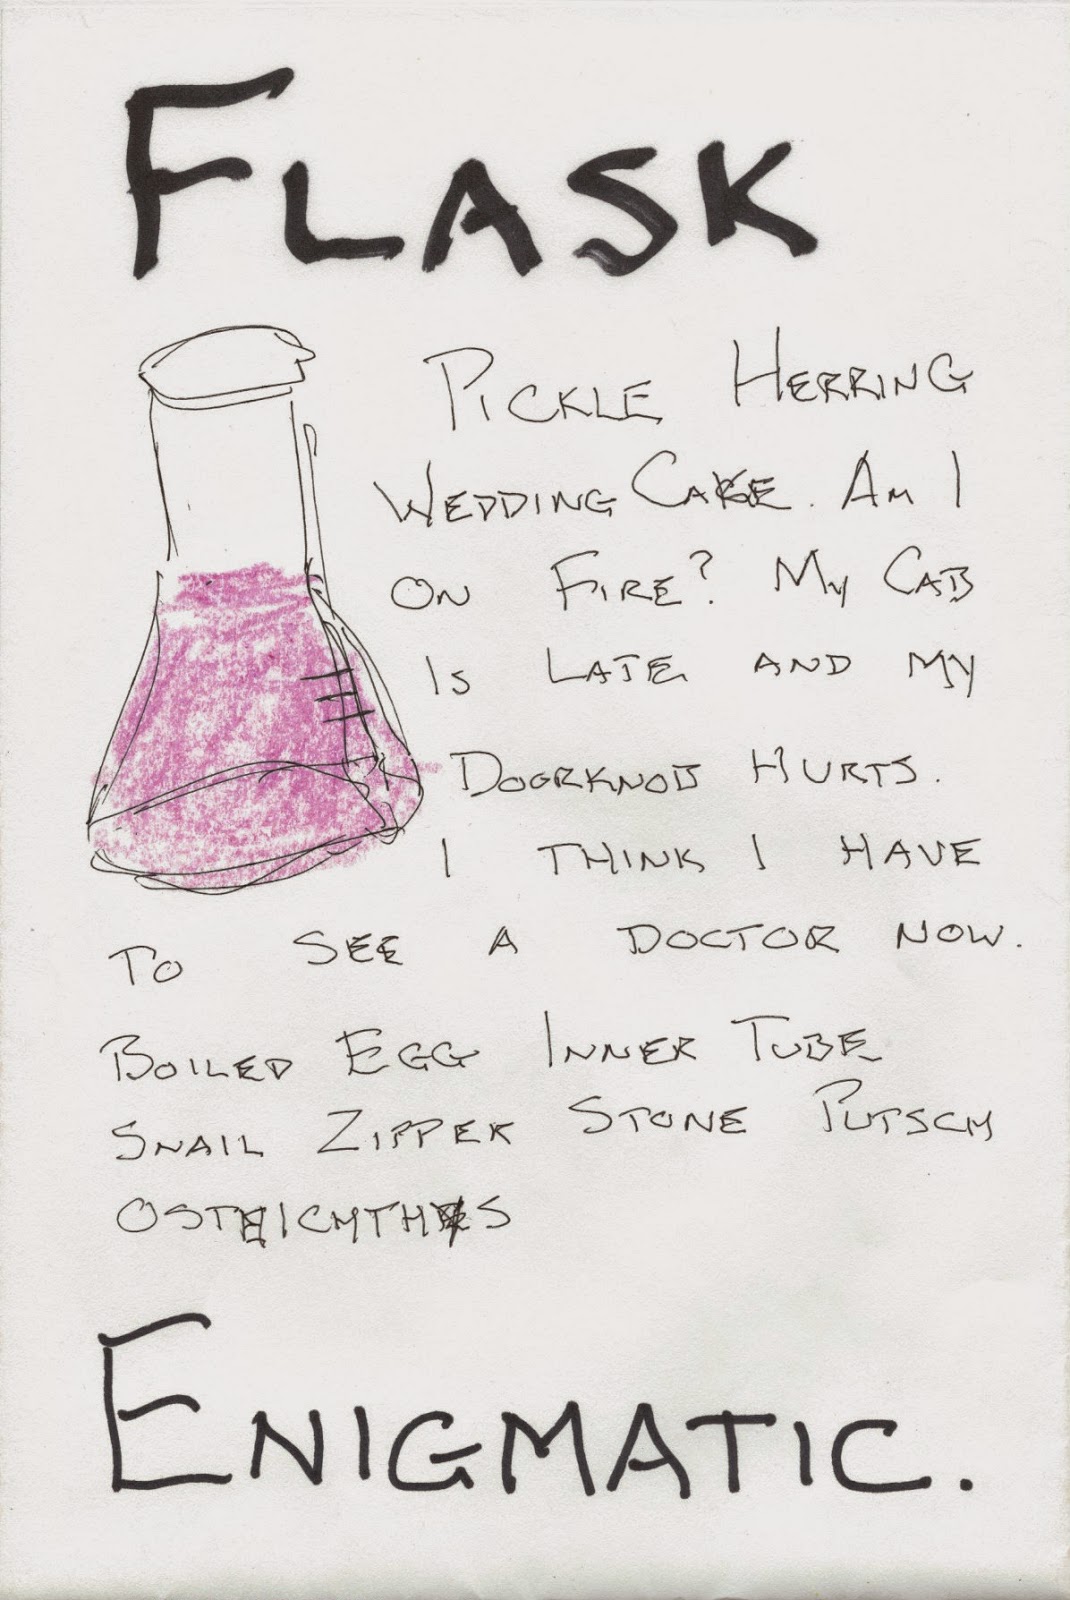 FLASK
PICKLE HERRING
WEDDING CAKE. AM I
ON FIRE? MY CAB
IS LATE AND MY
DOORKNOB HURTS.
I THINK I HAVE
TO SEE A DOCTOR NOW.
BOILED EGG INNER TUBE
SNAIL ZIPPER STONE PUTSCH
ENIGMATIC.